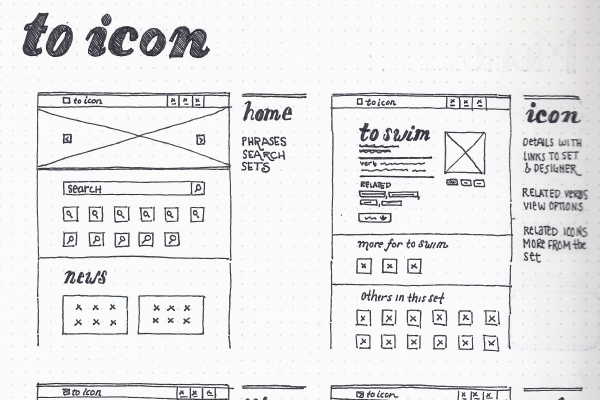 to icon
to icon
home
PHRASES
SEARCH
SETS
search
news
to icon
to swim
verb
RELATED
more for to swim
others in this set
icon
DETAILS WITH
LINKS TO SET
& DESIGNER
RELATED VERBS
VIEW OPTIONS
RELATED ICONS
MORE FROM the
set
to icon
to icon